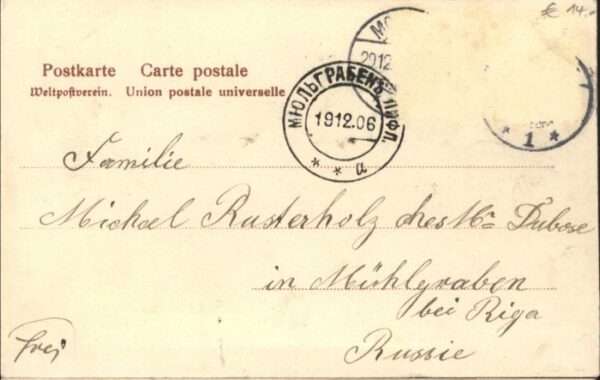 € 14.-
Postkarte Carte postale
Weltpostverein. Union postale universelle
МЮЛЬГРАБЕНЪ ЛИФЛ.
1912.06
* * а
20.12
* 1 *
Familie
Michael Rusterholz chez Mr Dubose
in Mühlgraben
bei Riga
Russie
frei